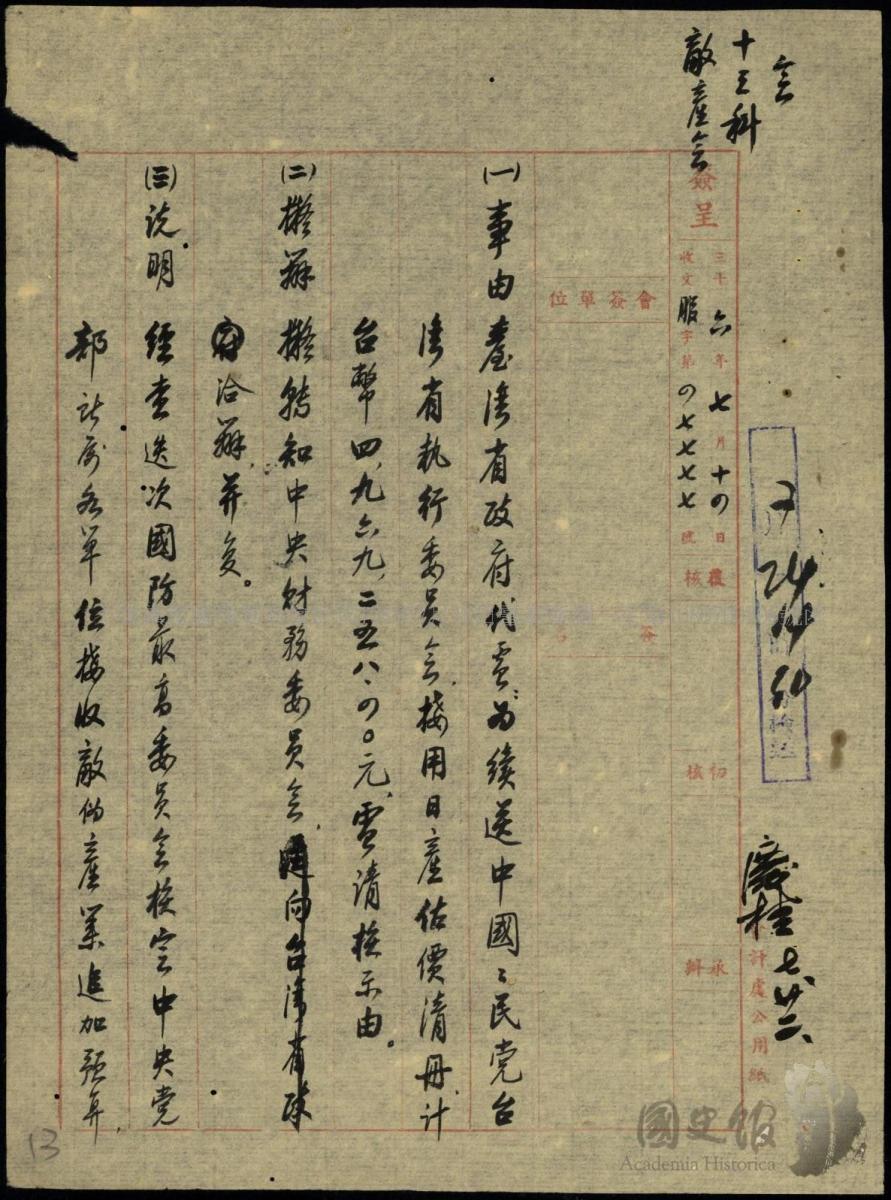 会
十三科
敵產会
簽呈
三十六年七月十四日
收文服字第四七七七七號
覆核
初核
承辦
計處公用紙
會簽單位
簽名
七、廿二、
(一)事由 臺湾省政府代電：為續送中國々民党台
湾省執行委員会接用日產估價清冊、計
台幣四、九六九、二五八・四〇元、電請核示由。
(二)擬辦 擬轉知中央財務委員会、逕向台湾省政
府洽辦、并复。
(三)説明 經查迭次國防最高委員会核定中央党
部所屬各單位接收敵偽產業追加預算、
13
國史館
Academia Historica